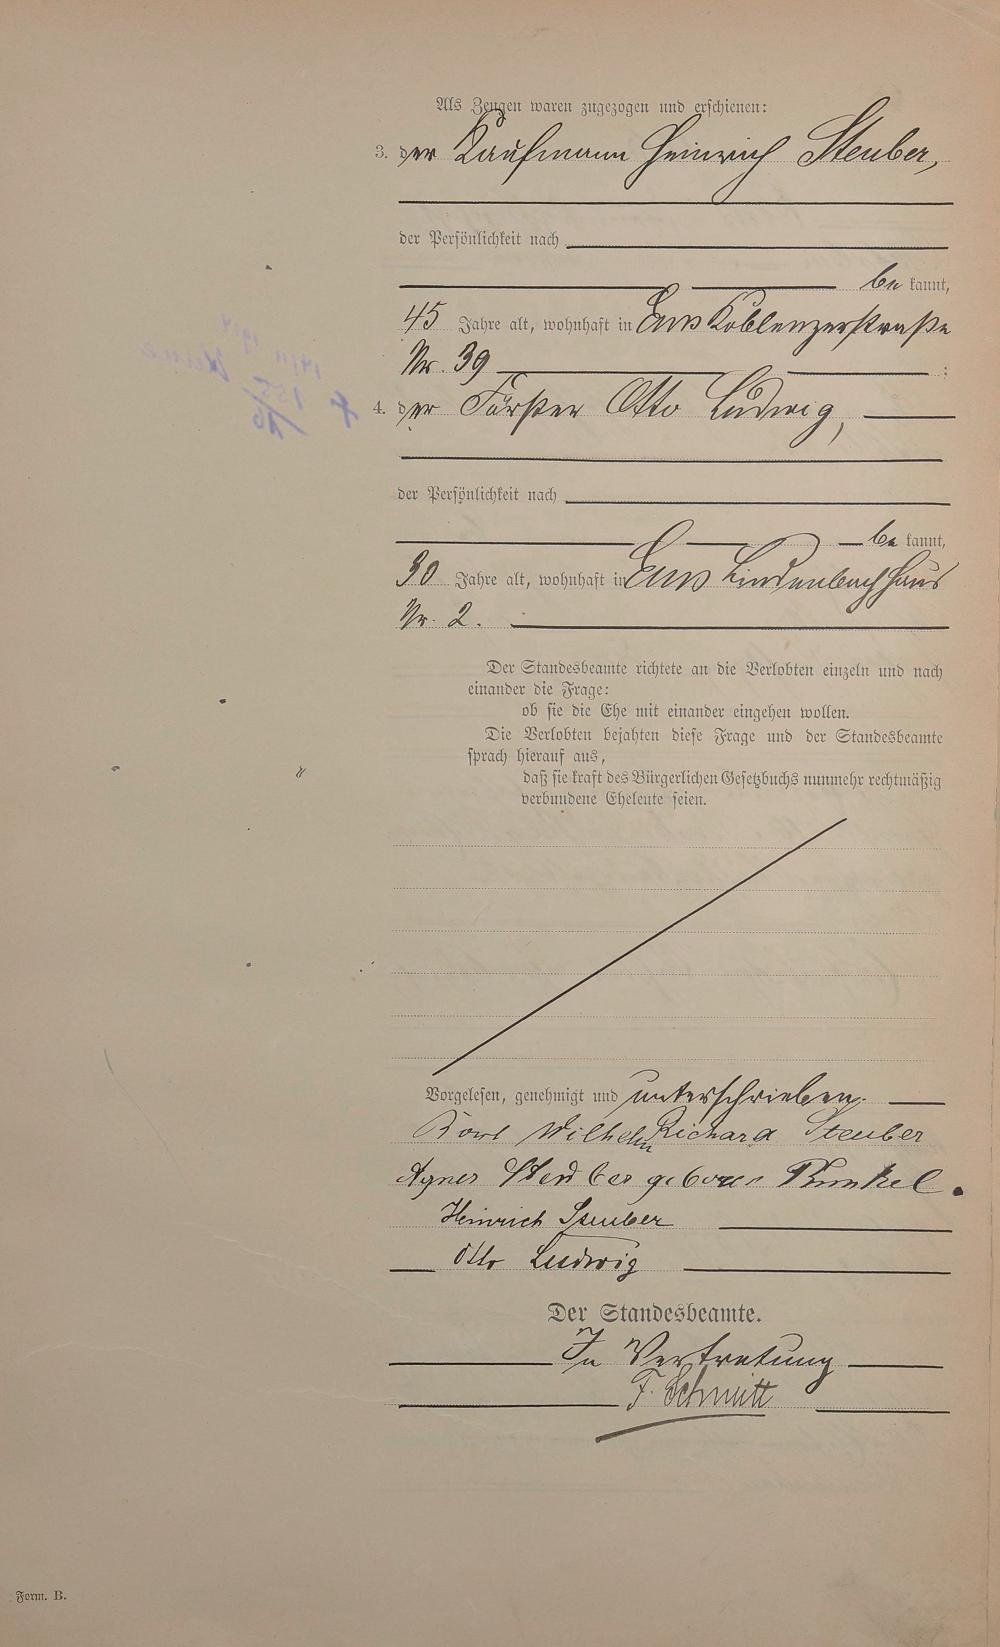 Als Zeugen waren zugezogen und erschienen:
3. der Kaufmann Heinrich Steuber,
der Persönlichkeit nach
be kannt,
45 Jahre alt, wohnhaft in Ems Koblenzerstraße
Nr. 39 ;
4. der Förster Otto Ludwig,
der Persönlichkeit nach
be kannt,
30 Jahre alt, wohnhaft in Ems Lindenbach Haus
Nr. 2.
Der Standesbeamte richtete an die Verlobten einzeln und nach
einander die Frage:
ob sie die Ehe mit einander eingehen wollen.
Die Verlobten bejahten diese Frage und der Standesbeamte
sprach hierauf aus,
daß sie kraft des Bürgerlichen Gesetzbuchs nunmehr rechtmäßig
verbundene Eheleute seien.
Vorgelesen, genehmigt und unterschrieben.
Karl Wilhelm Richard Steuber
Agnes Steuber geboren Runkel.
Heinrich Steuber
Otto Ludwig
Der Standesbeamte.
In Vertretung
F. Schmitt
Form. B.